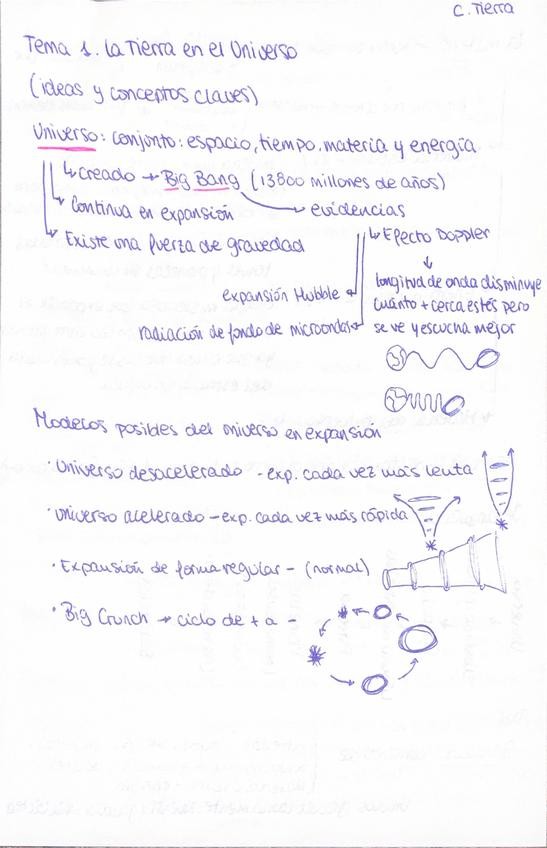 C. Tierra
Tema 1. La Tierra en el Universo
(ideas y conceptos claves)
Universo: conjunto: espacio, tiempo, materia y energía
↳ Creado → Big Bang (13800 millones de años)
↳ Continua en expansión
→ evidencias
↳ Existe una fuerza de gravedad
↳ Efecto Doppler
↓
longitud de onda disminuye
cuánto + cerca estés pero
se ve y escucha mejor
expansión Hubble
radiación de fondo de microondas
Modelos posibles del universo en expansión
· Universo desacelerado - exp. cada vez más lenta
· Universo acelerado - exp. cada vez más rápida
· Expansión de forma regular - (normal)
· Big Crunch → ciclo de + a -